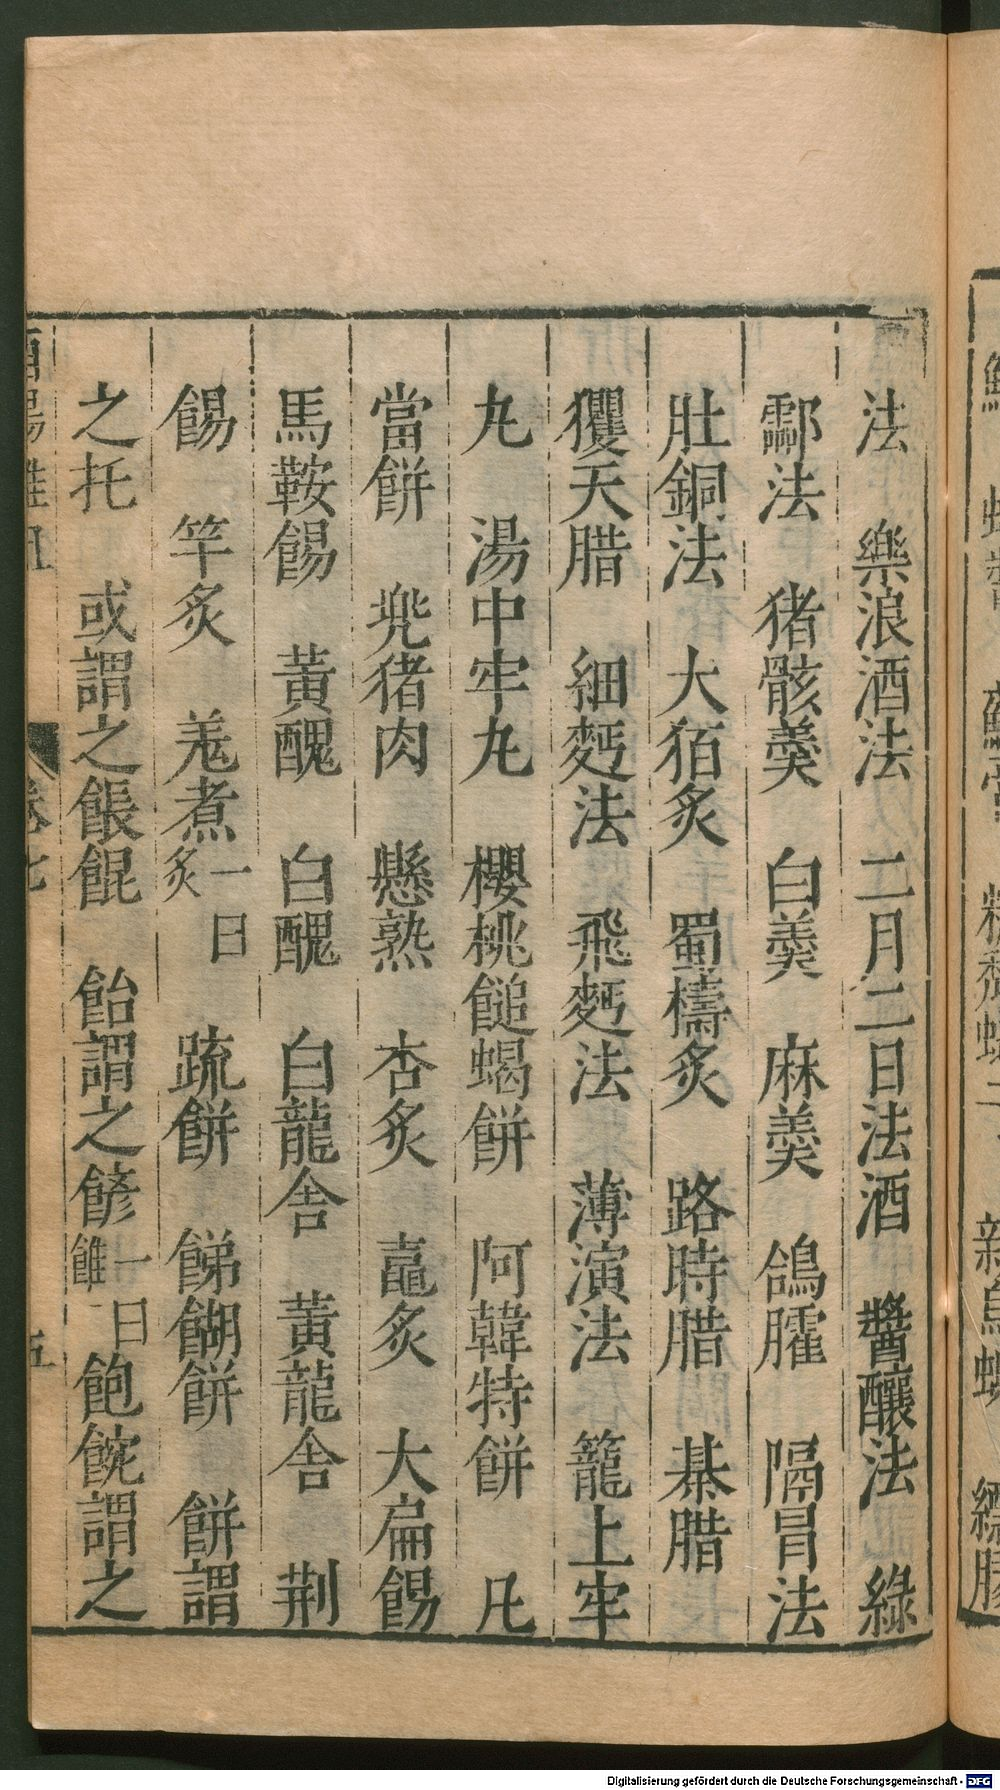 法 樂浪酒法 二月二日法酒 醬釀法 綠
酃法 猪骸羹 白羹 麻羹 鴿臛 隔冒法
肚銅法 大貊炙 蜀檮炙 路時腊 棊腊
玃天腊 細麪法 飛麪法 薄演法 籠上牢
丸 湯中牢丸 櫻桃䭔 蝎餅 阿韓特餅 凡
當餅 兠猪肉 懸熟 杏炙 鼃炙 大扁餳
馬鞍餳 黃醜 白醜 白龍舍 黃龍舍 荆
餳 竿炙 羗煮一曰炙 疏餅 䬾餬餅 餅謂
之托 或謂之餦餛 飴謂之䬳一曰䭚 飽䬧謂之
卷七
五
Digitalisierung gefördert durch die Deutsche Forschungsgemeinschaft - DFG